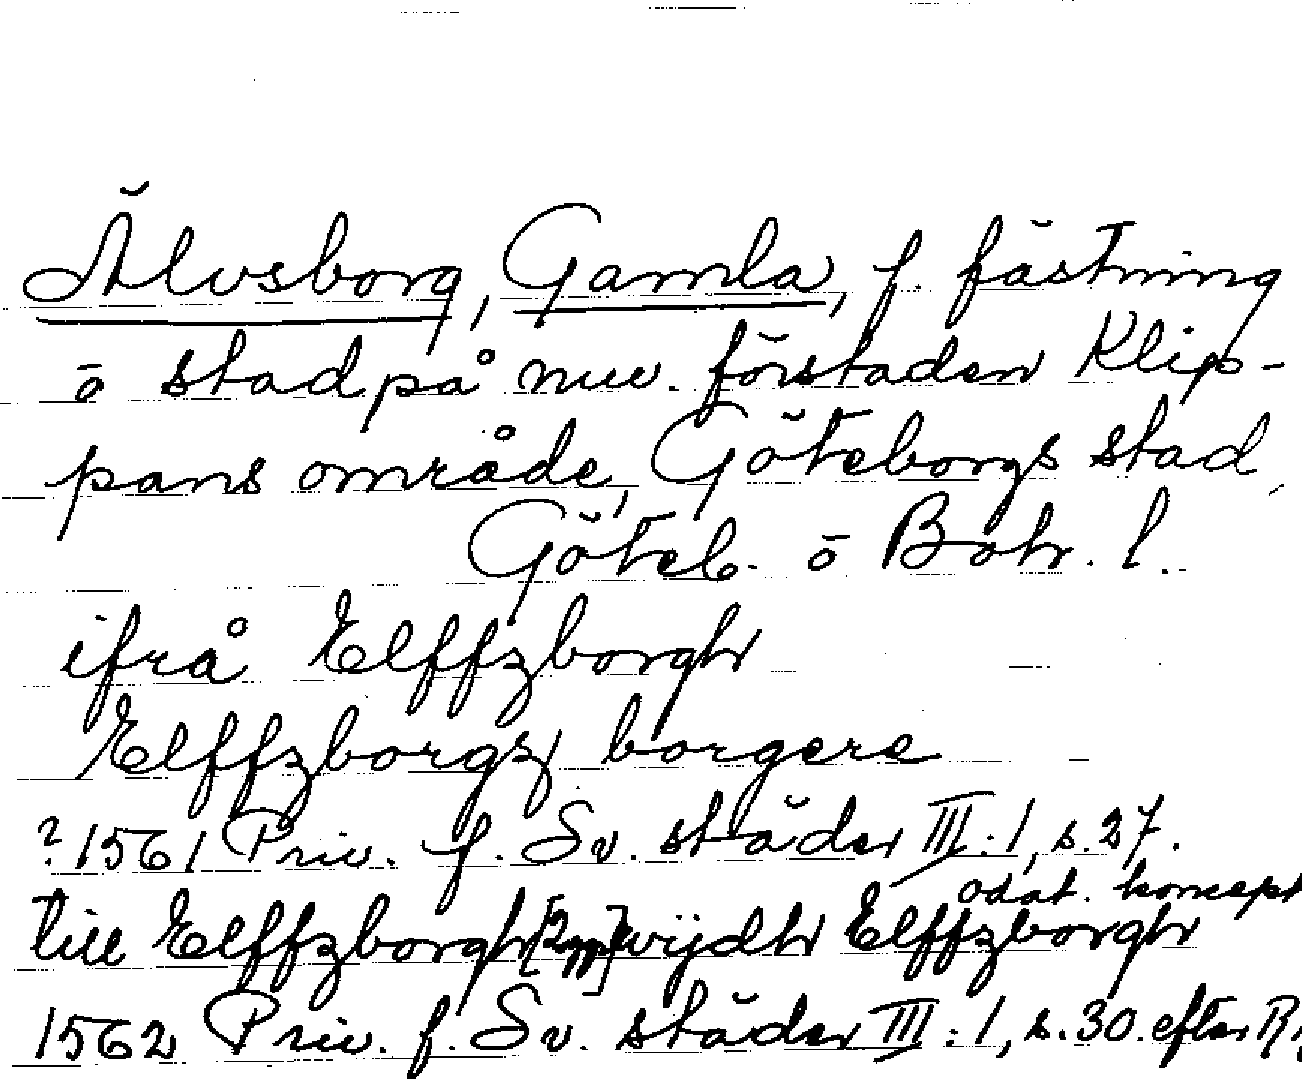 Älvsborg, Gamla, f. fästning
o stad på nuv. förstaden Klip-
pans område, Göteborgs stad,
Göteb. o Boh. l.
ifrå Elffzborgh
Elffzborgz borgere
? 1561 Priv. f. Sv. städer III:1, s. 27.
odat. koncept
till Elffzborgh [2 ggr] wijdh Elffzborgh
1562 Priv. f. Sv. städer III:1, s. 30. efter